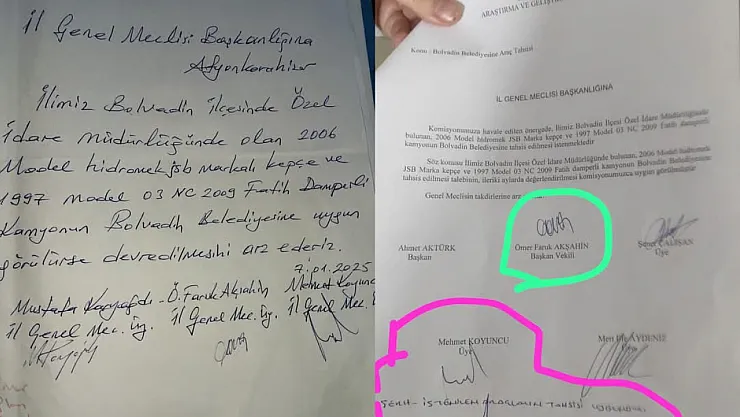 İl Genel Meclisi Başkanlığına
Afyonkarahisar
İlimiz Bolvadin ilçesinde Özel
İdare müdürlüğünde olan 2006
Model hidromek jsb markalı kepçe ve
1997 model 03 NC 2009 Fatih Damperli
Kamyonun Bolvadin Belediyesine uygun
görülürse devredilmesini arz ederiz.
7.01.2025
Mustafa Ö.Faruk Akşahin Mehmet Koyuncu
İl Genel Mec. Üy. İl Genel Mec. Üy. İl Genel Mec.
ARAŞTIRMA VE
Konu : Bolvadin Belediyesine Araç Tahsisi
İL GENEL MECLİSİ BAŞKANLIĞINA
Komisyonumuza havale edilen önergede, İlimiz Bolvadin İlçesi Özel İdare Müdürlüğünde
bulunan, 2006 Model hidromek JSB Marka kepçe ve 1997 Model 03 NC 2009 Fatih damperli
kamyonun Bolvadin Belediyesine tahsis edilmesi istenmektedir
Söz konusu İlimiz Bolvadin İlçesi Özel İdare Müdürlüğünde bulunan, 2006 Model hidromek
JSB Marka kepçe ve 1997 Model 03 NC 2009 Fatih damperli kamyonun Bolvadin Belediyesine
tahsis edilmesi talebinin, ileriki aylarda değerlendirilmesi komisyonumuzca uygun görülmüştür
Genel Meclisin takdirlerine
Ahmet AKTÜRK
Başkan
Ömer Faruk AKŞAHİN
Başkan Vekili
ÇALIŞAN
Üye
Mehmet KOYUNCU
Üye
AYDENİZ
Üye
ŞERH - İSTENİLEN ARAÇLARIN TAHSİSİ